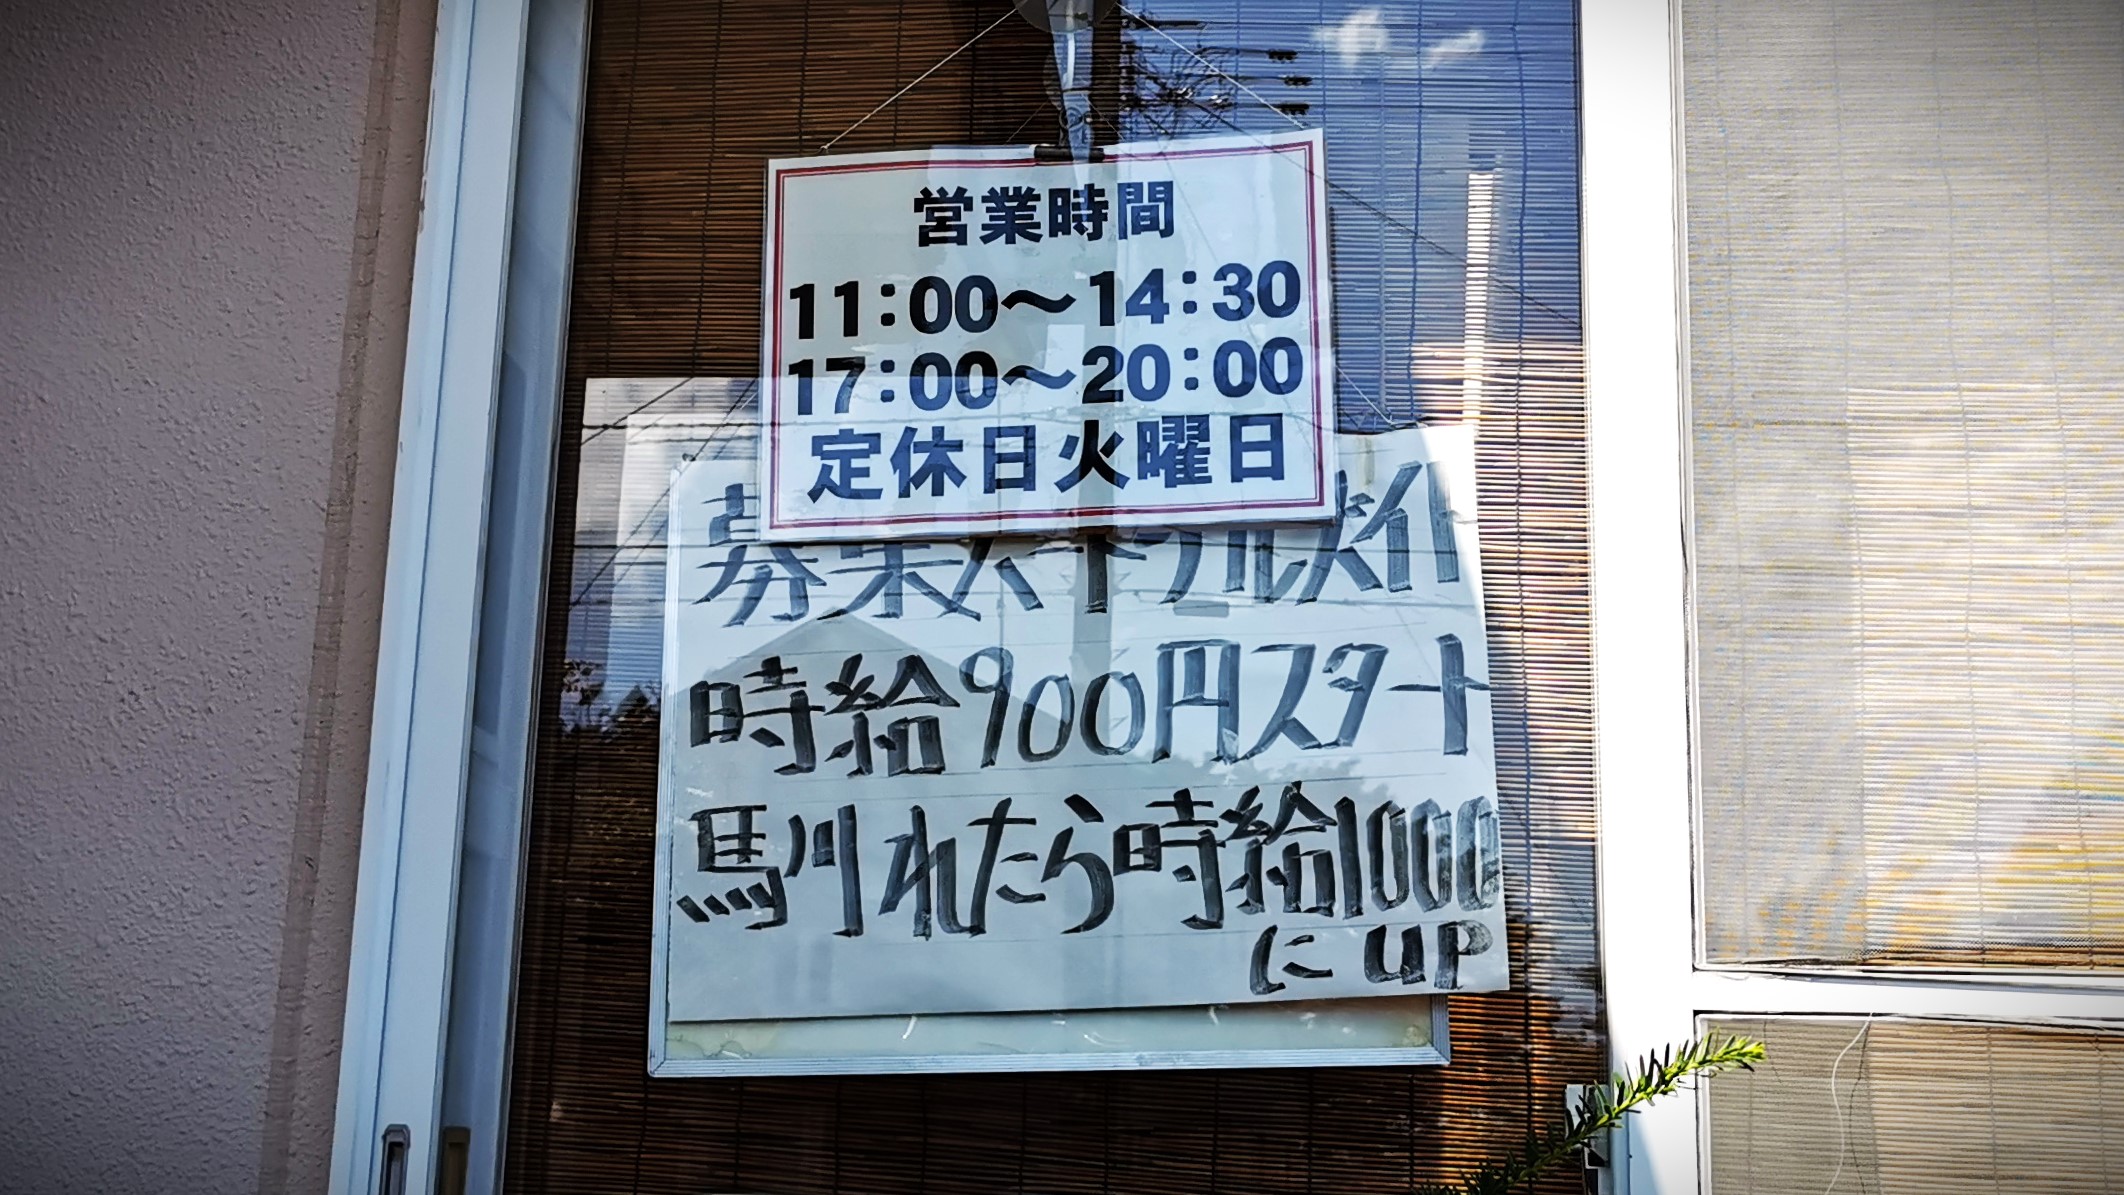 営業時間
11:00～14:30
17:00～20:00
定休日火曜日
募集パートアルバイト
時給900円スタート
馴れたら時給1000
にUP